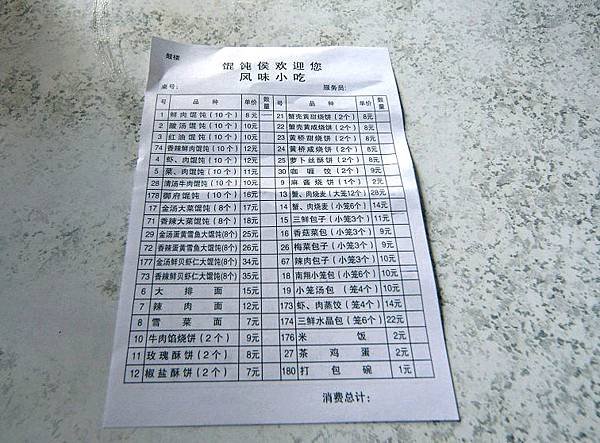 鼓楼
馄饨侯欢迎您
风味小吃
桌号: 服务员:
号 品种 单价 数量 号 品种 单价 数量
1 鲜肉馄饨(10个) 8元 21 蟹壳黄甜烧饼(2个) 8元
2 酸汤馄饨(10个) 10元 22 蟹壳黄咸烧饼(2个) 8元
3 红油馄饨(10个) 10元 23 黄桥甜烧饼(2个) 8元
74 香辣鲜肉馄饨(10个) 12元 24 黄桥咸烧饼(2个) 8元
4 虾、肉馄饨(10个) 12元 25 萝卜丝酥饼(2个) 8元
5 菜、肉馄饨(10个) 11元 30 咖喱饺(2个) 9元
28 清汤牛肉馄饨(10个) 10元 9 麻酱烧饼(1个) 2元
178 御府馄饨(10个) 16元 13 蟹、肉烧麦(大笼12个) 28元
17 金汤大菜馄饨(8个) 17元 14 蟹、肉烧麦(小笼6个) 14元
71 香辣大菜馄饨(8个) 18元 15 三鲜包子(小笼3个) 11元
29 金汤蛋黄雪鱼大馄饨(8个) 25元 16 香菇菜包(小笼3个) 9元
72 香辣蛋黄雪鱼大馄饨(8个) 26元 26 梅菜包子(小笼3个) 9元
177 金汤鲜贝虾仁大馄饨(8个) 34元 67 辣肉包子(小笼3个) 10元
73 香辣鲜贝虾仁大馄饨(8个) 35元 18 南翔小笼包(小笼6个) 10元
6 大排面 15元 19 小笼汤包(笼4个) 10元
7 辣肉面 12元 173 虾、肉蒸饺(笼4个) 14元
8 雪菜面 7元 174 三鲜水晶包(笼6个) 22元
10 牛肉馅烧饼(2个) 9元 176 米饭 2元
11 玫瑰酥饼(2个) 8元 27 茶鸡蛋 2元
12 椒盐酥饼(2个) 7元 180 打包碗 1元
消费总计: